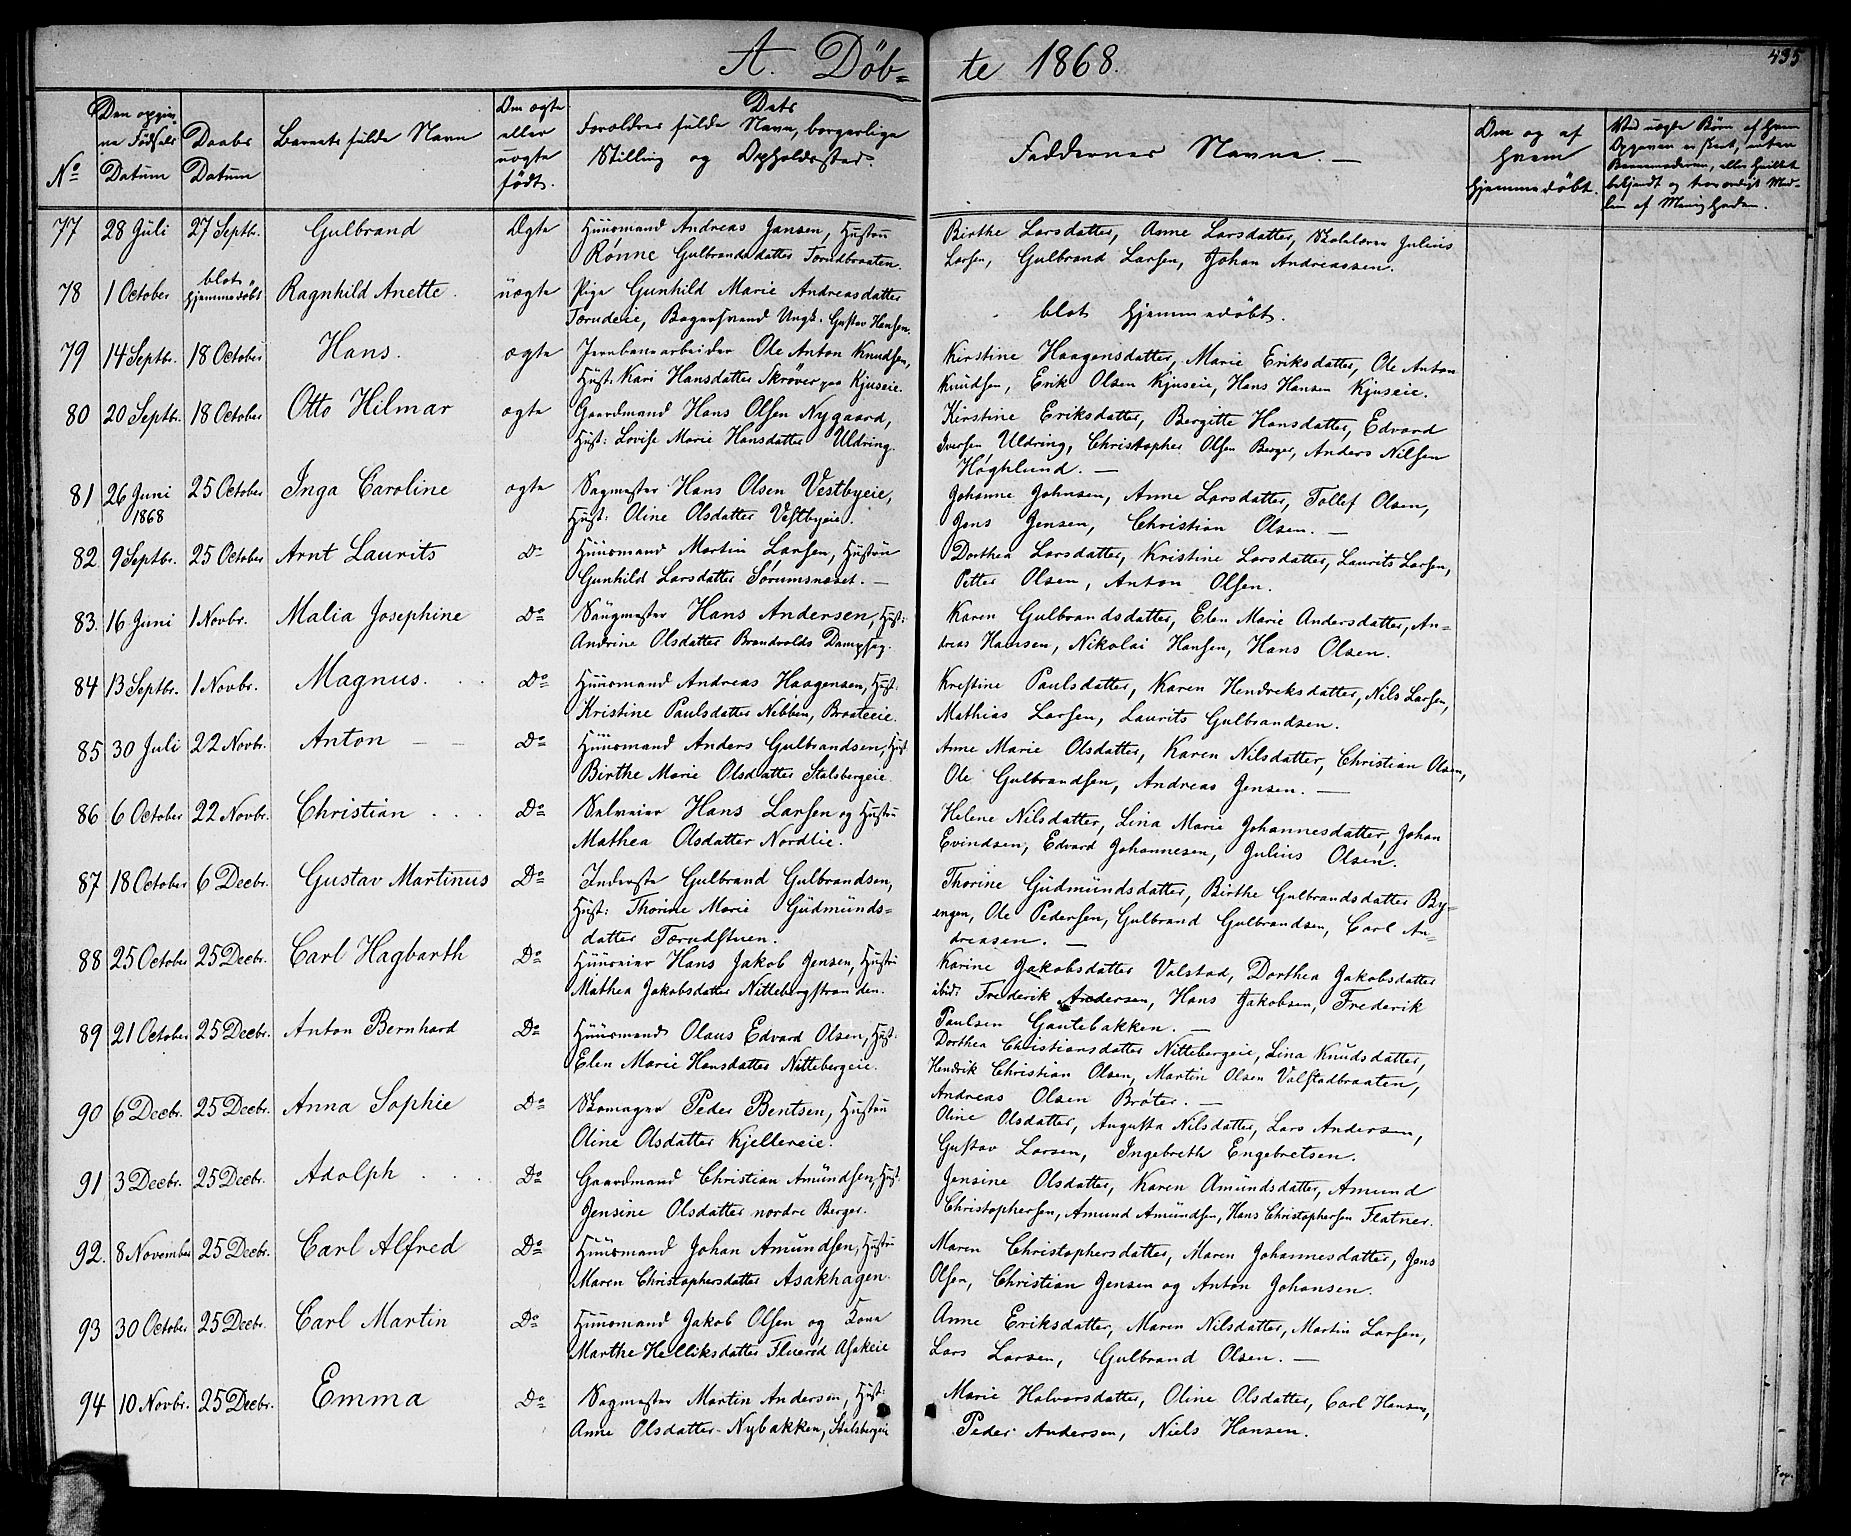 A. Döb- te 1868.
435
No
Den opgiv-
ne Födsels
Datum
Daabs
Datum
Barnets fulde Navn
Om ægte
eller
uægte
født.
Forældres fulde Dets Navn, borgerlige
Stilling og Opholdssted.
Faddernes Navne. —
Om og af
hvem
hjemmedöbt.
Ved uægte Børn af hvem
Opgaven er skeet, enten
Barnemoderen, eller hvilket
bekjendt og troværdigt Med-
lem af Menigheden.
77 28 Juli 27 Septbr. Gulbrand Ægte Huusmand Andreas Jansen, Hustru
Rønne Gulbrandsdatter Tærudbraaten.
Birthe Larsdatter, Anne Larsdatter, Skolelærer Julius
Larsen, Gulbrand Larsen, Johan Andreassen.
78 1 October blot hjemmedöbt Ragnhild Anette. uægte Pige Gunhild Marie Andreasdatter
Tærudeie, Bagersvend Ungk. Gustav Hansen.
blot hjemmedöbt.
79 14 Septbr. 18 October Hans. ægte Jernbanearbeider Ole Anton Knudsen,
Hust: Kari Hansdatter Skrøver paa Kjuseie.
Kirstine Haagensdatter, Marie Eriksdatter, Ole Anton
Knudsen, Erik Olsen Kjuseie, Hans Hansen Kjuseie.
80 20 Septbr. 18 October Otto Hilmar ægte Gaardmand Hans Olsen Nygaard,
Hust: Lovise Marie Hansdatter Uldring.
Kirstine Eriksdatter, Bergitte Hansdatter, Edvard
Iversen Uldring, Christopher Olsen Berger, Anders Nilsen
Høghlund. —
81 26 Juni 1868 25 October Inga Caroline ægte Sagmester Hans Olsen Vestbyeie,
Hust: Oline Olsdatter Vestbyeie.
Johanne Johnsen, Anne Larsdatter, Tollef Olsen,
Jens Jensen, Christian Olsen. —
82. 9 Septbr. 25 October Arnt Laurits Do Huusmand Martin Larsen, Hustru
Gunhild Larsdatter Sørumsnæset. —
Dorthea Larsdatter, Kristine Larsdatter, Laurits Larsen,
Petter Olsen, Anton Olsen.
83. 16 Juni 1 Novbr. Malia Josephine Do Saugmester Hans Andersen, Hust:
Andrine Olsdatter Brandvolds Dampsag.
Karen Gulbrandsdatter, Elen Marie Andersdatter, An-
dreas Hansen, Nikolai Hansen, Hans Olsen.
84 13 Septbr. 1 Novbr. Magnus. Do Huusmand Andreas Haagensen, Hust:
Kristine Paulsdatter Nebben, Braateeie.
Krestine Paulsdatter, Karen Hendreksdatter, Nils Larsen,
Mathias Larsen, Laurits Gulbrandsen.
85 30 Juli 22 Novbr. Anton Do Huusmand Anders Gulbrandsen, Hust
Birthe Marie Olsdatter Stalsbergeie.
Anne Marie Olsdatter, Karen Nilsdatter, Christian Olsen,
Ole Gulbrandsen, Andreas Jensen. —
86 6 October 22 Novbr. Christian Do Selveier Hans Larsen og Hustru
Mathea Olsdatter Nordlie.
Helene Nilsdatter, Lina Marie Johannesdatter, Johan
Evindsen, Edvard Johannesen, Julius Olsen.
87 18 October 6 Decbr. Gustav Martinus Do Inderste Gulbrand Gulbrandsen,
Hust: Thorine Marie Gudmunds-
datter Tærudstuen.
Thorine Gudmundsdatter, Birthe Gulbrandsdatter By-
engen, Ole Pedersen, Gulbrand Gulbrandsen, Carl An-
dreasen. —
88 25 October 25 Decbr. Carl Hagbarth Do Huuseier Hans Jakob Jensen, Hustru
Mathea Jakobsdatter Nittebergstranden.
Karine Jakobsdatter Valstad, Dorthea Jakobsdatter
ibid: Frederik Andersen, Hans Jakobsen, Frederik
Paulsen Gautebakken. —
89 21 October 25 Decbr. Anton Bernhard Do Huusmand Olaus Edvard Olsen, Hust:
Elen Marie Hansdatter Nittebergeie.
Dorthea Christiansdatter Nittebergeie, Lina Knudsdatter,
Hendrik Christian Olsen, Martin Olsen Valstadbraaten,
Andreas Olsen Bröter. —
90 6 Decbr. 25 Decbr. Anna Sophie Do Skomager Peder Bentsen, Hustru
Oline Olsdatter Kjellereie.
Oline Olsdatter, Augusta Nilsdatter, Lars Andersen,
Gustav Larsen, Ingebreth Engebretsen.
91 3 Decbr. 25 Decbr. Adolph Do Gaardmand Christian Amundsen, Hust.
Jensine Olsdatter nordre Berger.
Jensine Olsdatter, Karen Amundsdatter, Amund
Christophersen, Amund Amundsen, Hans Christophersen Flatner.
92. 8 November 25 Decbr. Carl Alfred Do Huusmand Johan Amundsen, Hustru
Maren Christophersdatter Asakhagen.
Maren Christophersdatter, Maren Johannesdatter, Jens
Olsen, Christian Jensen og Anton Johansen.
93 30 October 25 Decbr. Carl Martin Do Huusmand Jakob Olsen og Kone
Marthe Helliksdatter Fluerød Asakeie
Anne Eriksdatter, Maren Nilsdatter, Martin Larsen,
Lars Larsen, Gulbrand Olsen. —
94 10 Novbr. 25 Decbr. Emma Do Sagmester Martin Andersen, Hust:
Anne Olsdatter Nybakken, Stalsbergeie
Marie Halvorsdatter, Oline Olsdatter, Carl Hansen,
Peder Andersen, Niels Hansen.